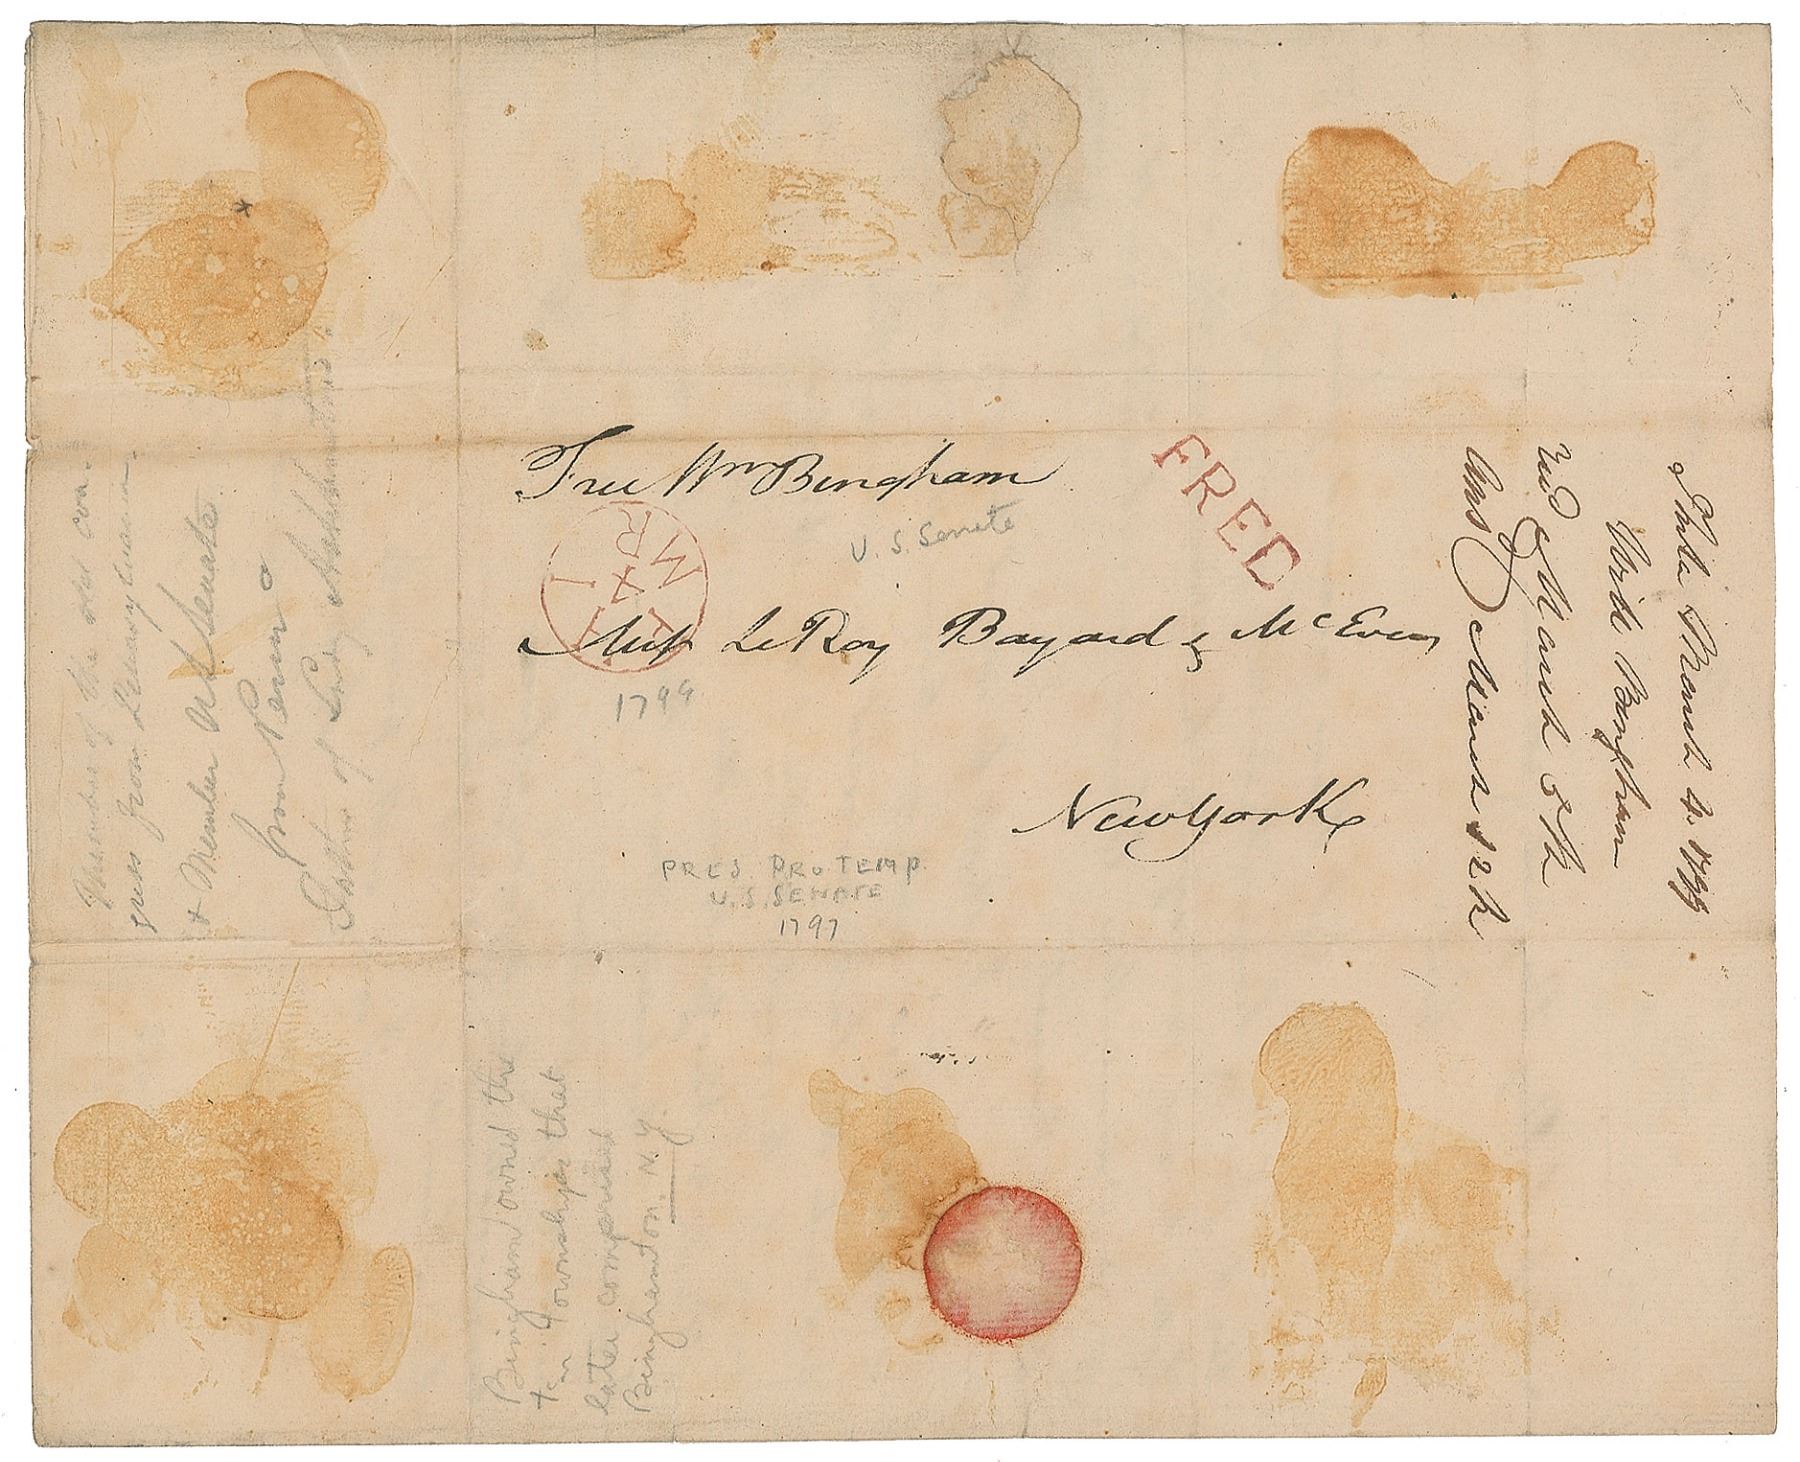 Free Wm Bingham
FREE
U. S. Senate
Mess LeRoy Bayard & McEvers
1799
New York
PRES PRO TEMP
U.S. SENATE
1797
Phila March 4. 1799
Wm Bingham
March 5th
Ansd March 12th
Member of the old Con-
gress from Pennsylvania
+ Member U S Senate
from Penn a
of Lady Ashburton.
Bingham owned the
ten Townships that
later comprised
Binghamton N.Y.